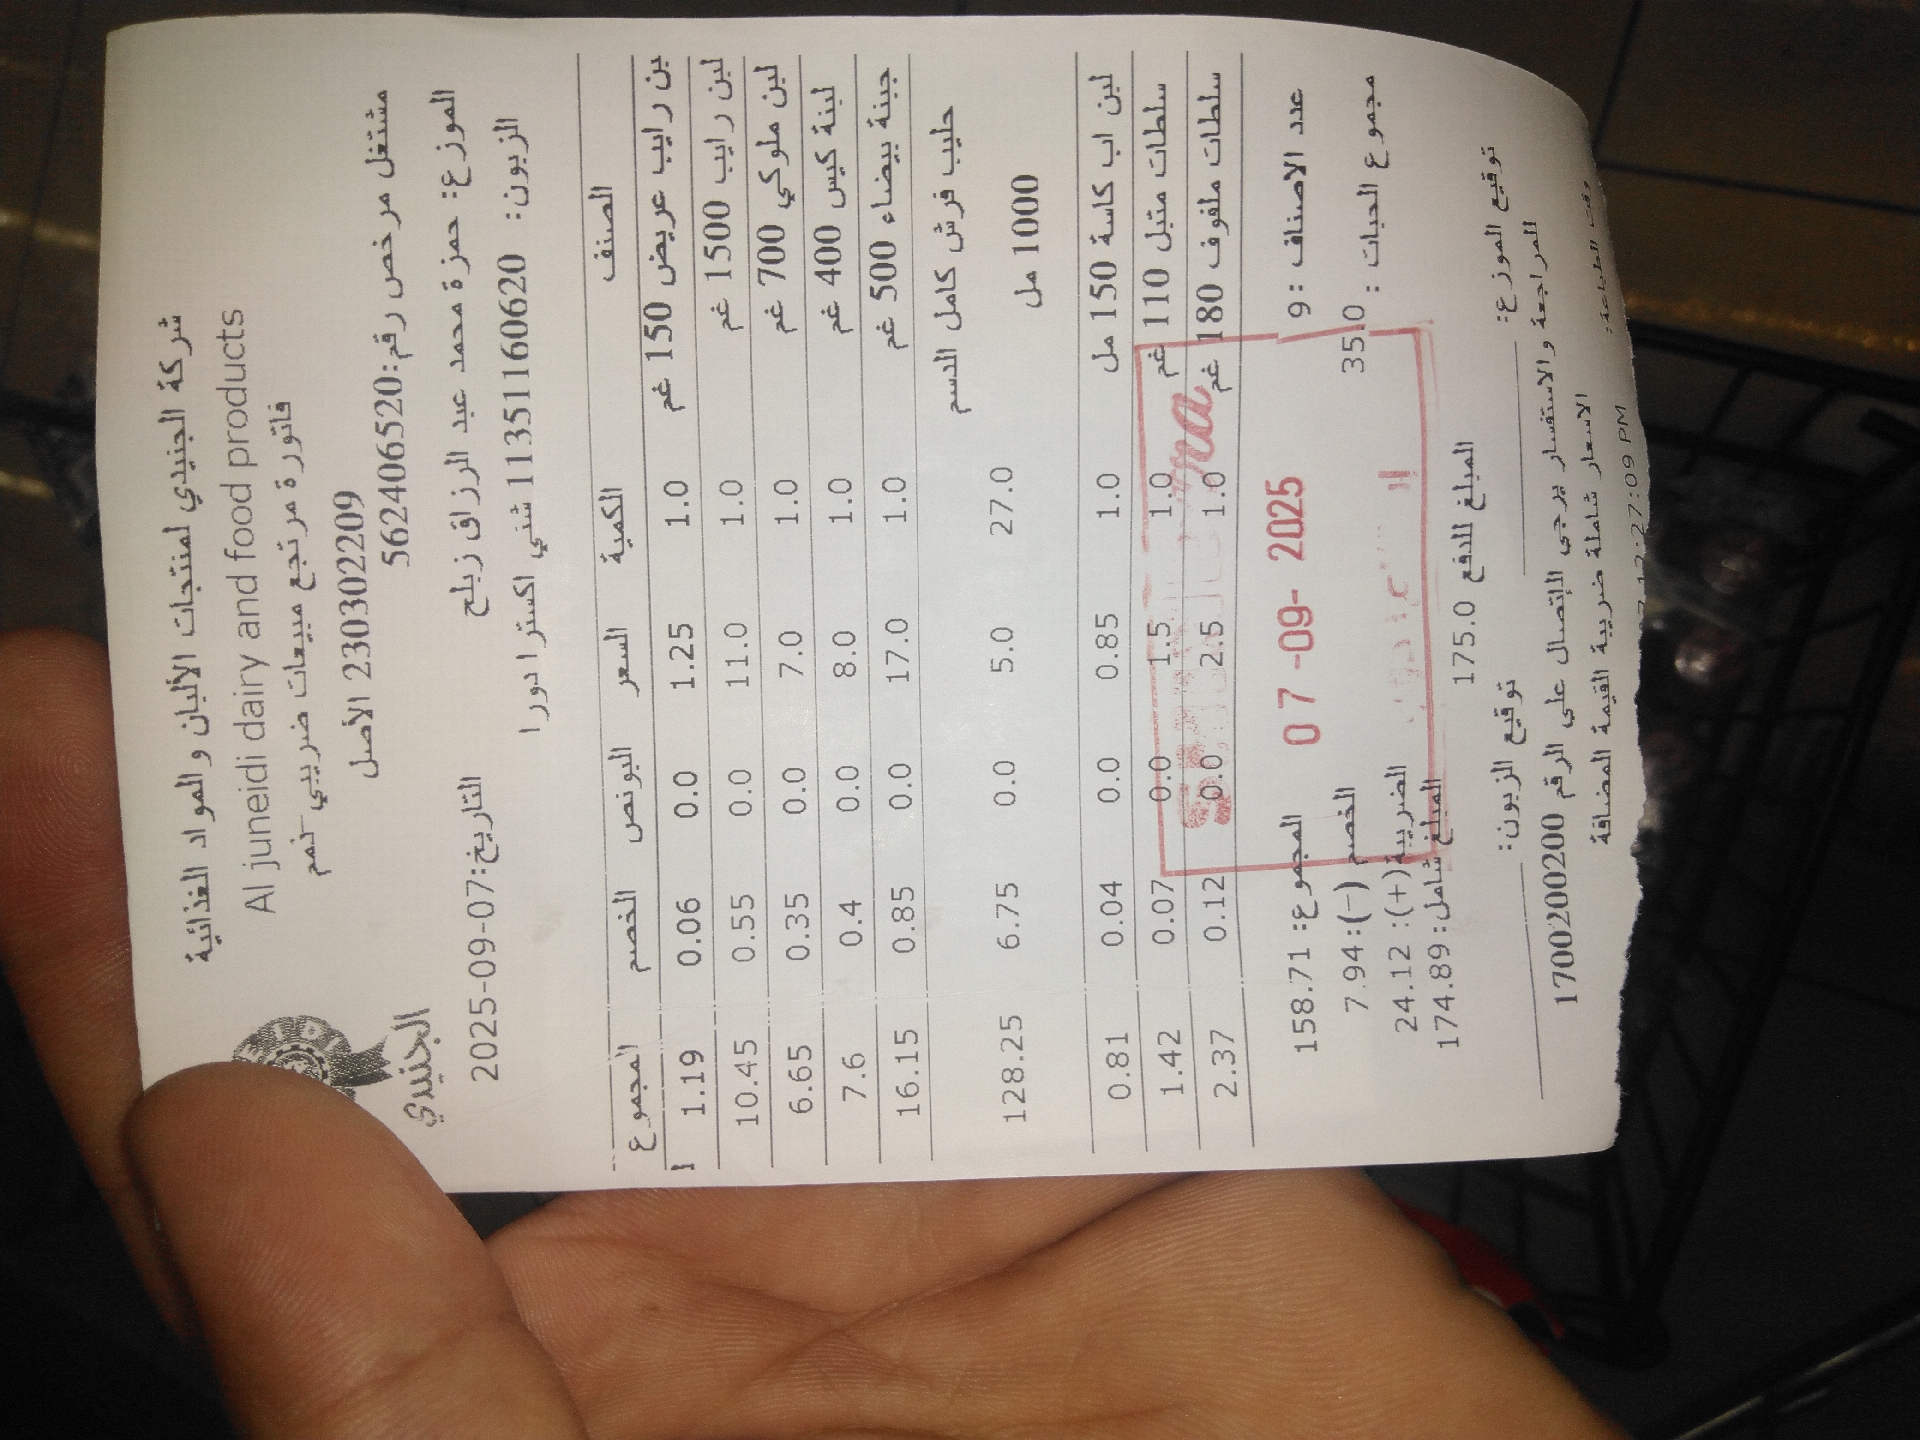 شركة الجنيدي لمنتجات الألبان والمواد الغذائية
Al juneidi dairy and food products
فاتورة مرتجع مبيعات ضريبي-ذمم
230302209 الأصل
مشتغل مرخص رقم:562406520
الجنيدي
الموزع: حمزة محمد عبد الرزاق زبلح
التاريخ:2025-09-07
الزبون: 11351160620 شني اكسترا دورا
الصنف الكمية السعر البونص الخصم المجموع
بن رايب عريض 150 غم 1.0 1.25 0.0 0.06 1.19
لبن رايب 1500 غم 1.0 11.0 0.0 0.55 10.45
لبن ملوكي 700 غم 1.0 7.0 0.0 0.35 6.65
لبنة كيس 400 غم 1.0 8.0 0.0 0.4 7.6
جبنة بيضاء 500 غم 1.0 17.0 0.0 0.85 16.15
حليب فرش كامل الدسم
1000 مل 27.0 5.0 0.0 6.75 128.25
لبن اب كاسة 150 مل 1.0 0.85 0.0 0.04 0.81
سلطات متبل 110 غم 1.0 1.5 0.0 0.07 1.42
سلطات ملفوف 180 غم 1.0 2.5 0.0 0.12 2.37
07-09-2025
عدد الاصناف : 9 المجموع: 158.71
مجموع الحبات : 35.0 الخصم (-): 7.94
الضريبة(+): 24.12
المبلغ شامل: 174.89
المبلغ للدفع 175.0
توقيع الموزع: توقيع الزبون:
للمراجعة والاستفسار يرجى الإتصال على الرقم 1700200200
الاسعار شاملة ضريبة القيمة المضافة
وقت الطباعة: 12:27:09 PM